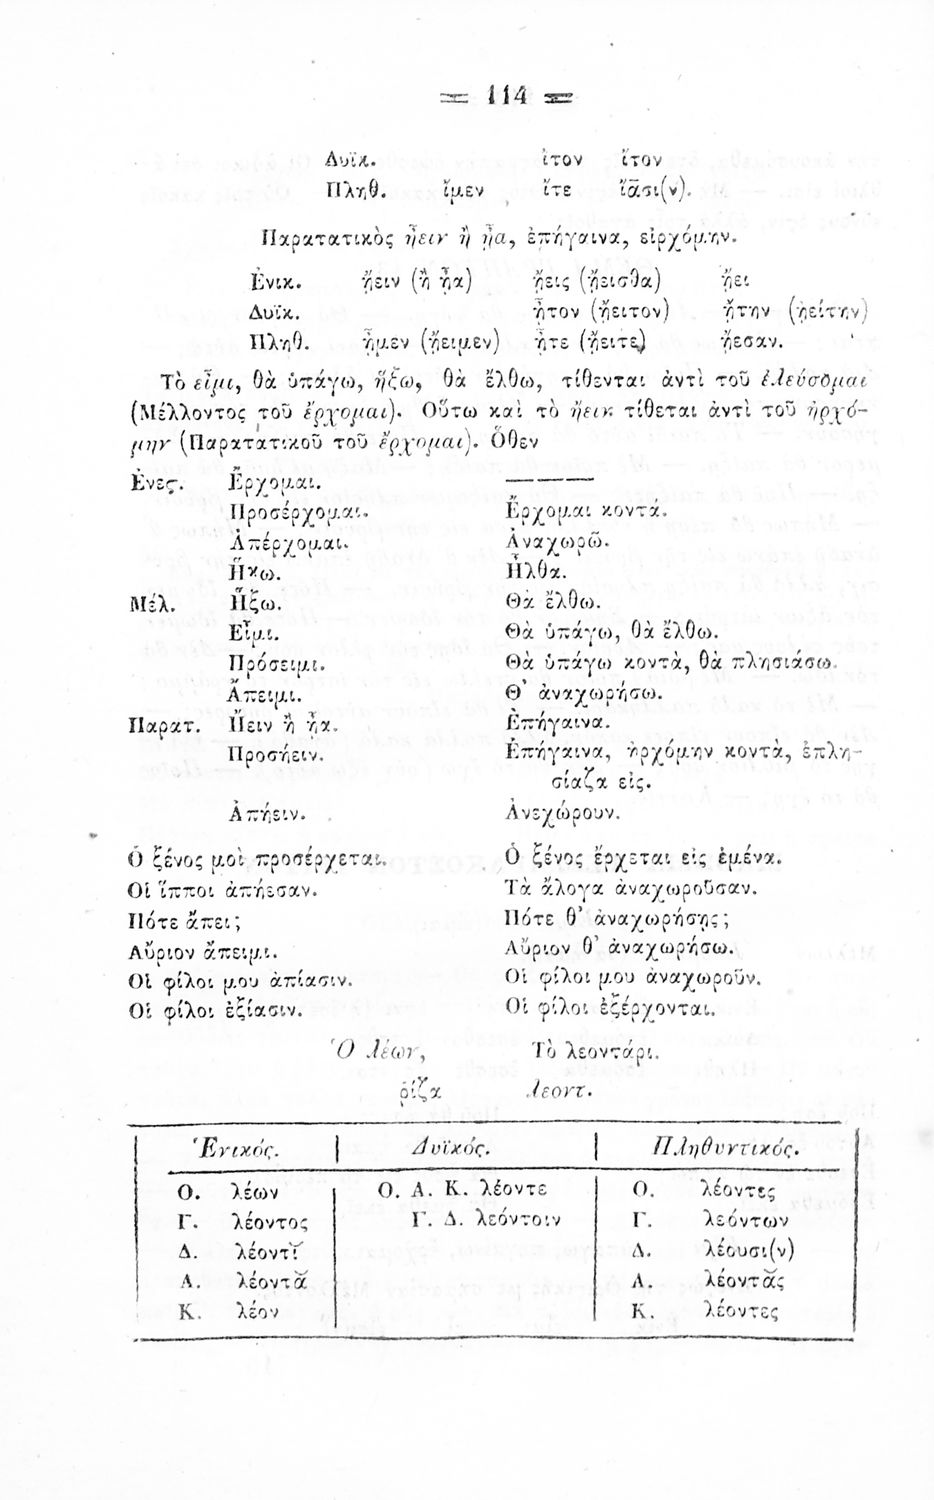 = 114 =
Δυϊκ. ἴτον ἴτον
Πληθ. ἴμεν ἴτε ἴᾶσι(ν).
Παρατατικὸς ᾔειν ἢ ᾖα, ἐπήγαινα, εἰρχόμην.
Ἑνικ. ᾔειν (ἢ ᾖα) ᾔεις (ᾔεισθα) ᾔει
Δυϊκ. ᾖτον (ᾔειτον) ᾔτην (ᾐείτην)
Πληθ. ᾖμεν (ᾔειμεν) ᾖτε (ᾔειτε) ᾔεσαν.
Τὸ εἶμι, θὰ ὑπάγω, ἥξω, θὰ ἔλθω, τίθενται ἀντὶ τοῦ ἐλεύσομαι
(Μέλλοντος τοῦ ἔρχομαι). Οὕτω καὶ τὸ ᾔειν τίθεται ἀντὶ τοῦ ἠρχό-
μην (Παρατατικοῦ τοῦ ἔρχομαι). Ὅθεν
Ἐνεστ. Ἔρχομαι. ———
Προσέρχομαι. Ἔρχομαι κοντά.
Ἀπέρχομαι. Ἀναχωρῶ.
Ἥκω. Ἦλθα.
Μέλ. Ἥξω. Θὰ ἔλθω.
Εἶμι. Θὰ ὑπάγω, θὰ ἔλθω.
Πρόσειμι. Θὰ ὑπάγω κοντὰ, θὰ πλησιάσω.
Ἄπειμι. Θ' ἀναχωρήσω.
Παρατ. Ἤειν ἢ ᾖα. Ἐπήγαινα.
Προσήειν. Ἐπήγαινα, ἠρχόμην κοντὰ, ἐπλη-
σίαζα εἰς.
Ἀπήειν. Ἀνεχώρουν.
Ὁ ξένος μοὶ προσέρχεται. Ὁ ξένος ἔρχεται εἰς ἐμένα.
Οἱ ἵπποι ἀπήεσαν. Τὰ ἄλογα ἀναχωροῦσαν.
Πότε ἄπει; Πότε θ' ἀναχωρήσῃς;
Αὔριον ἄπειμι. Αὔριον θ' ἀναχωρήσω.
Οἱ φίλοι μου ἀπίασιν. Οἱ φίλοι μου ἀναχωροῦν.
Οἱ φίλοι ἐξίασιν. Οἱ φίλοι ἐξέρχονται.
Ὁ λέων, Τὸ λεοντάρι.
ῥίζα λεοντ.
Ἑνικός. Δυϊκός. Πληθυντικός.
Ο. λέων Ο. Α. Κ. λέοντε Ο. λέοντες
Γ. λέοντος Γ. Δ. λεόντοιν Γ. λεόντων
Δ. λέοντῐ Δ. λέουσι(ν)
Α. λέοντᾰ Α. λέοντᾰς
Κ. λέον Κ. λέοντες